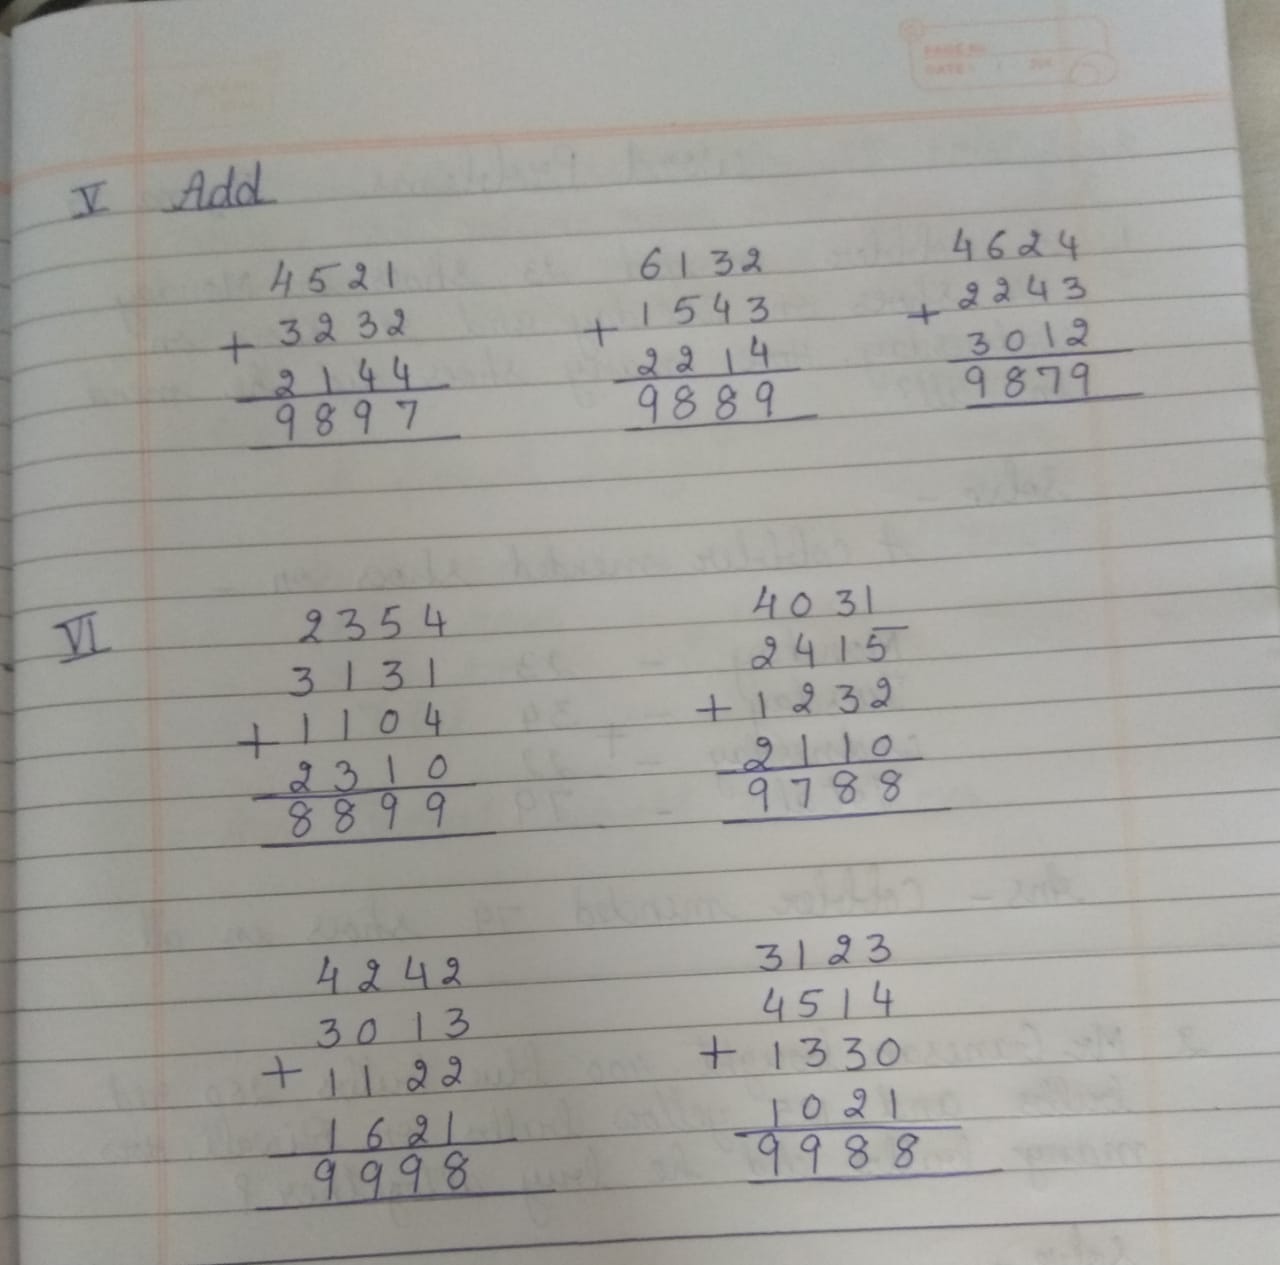 PAGE No.
DATE:
V Add
4521 6132 4624
+ 3232 + 1543 + 2243
2144 2214 3012
9897 9889 9879
VI 2354 4031
3131 2415
+ 1104 + 1232
2310 2110
8899 9788
4242 3123
3013 4514
+ 1122 + 1330
1621 1021
9998 9988